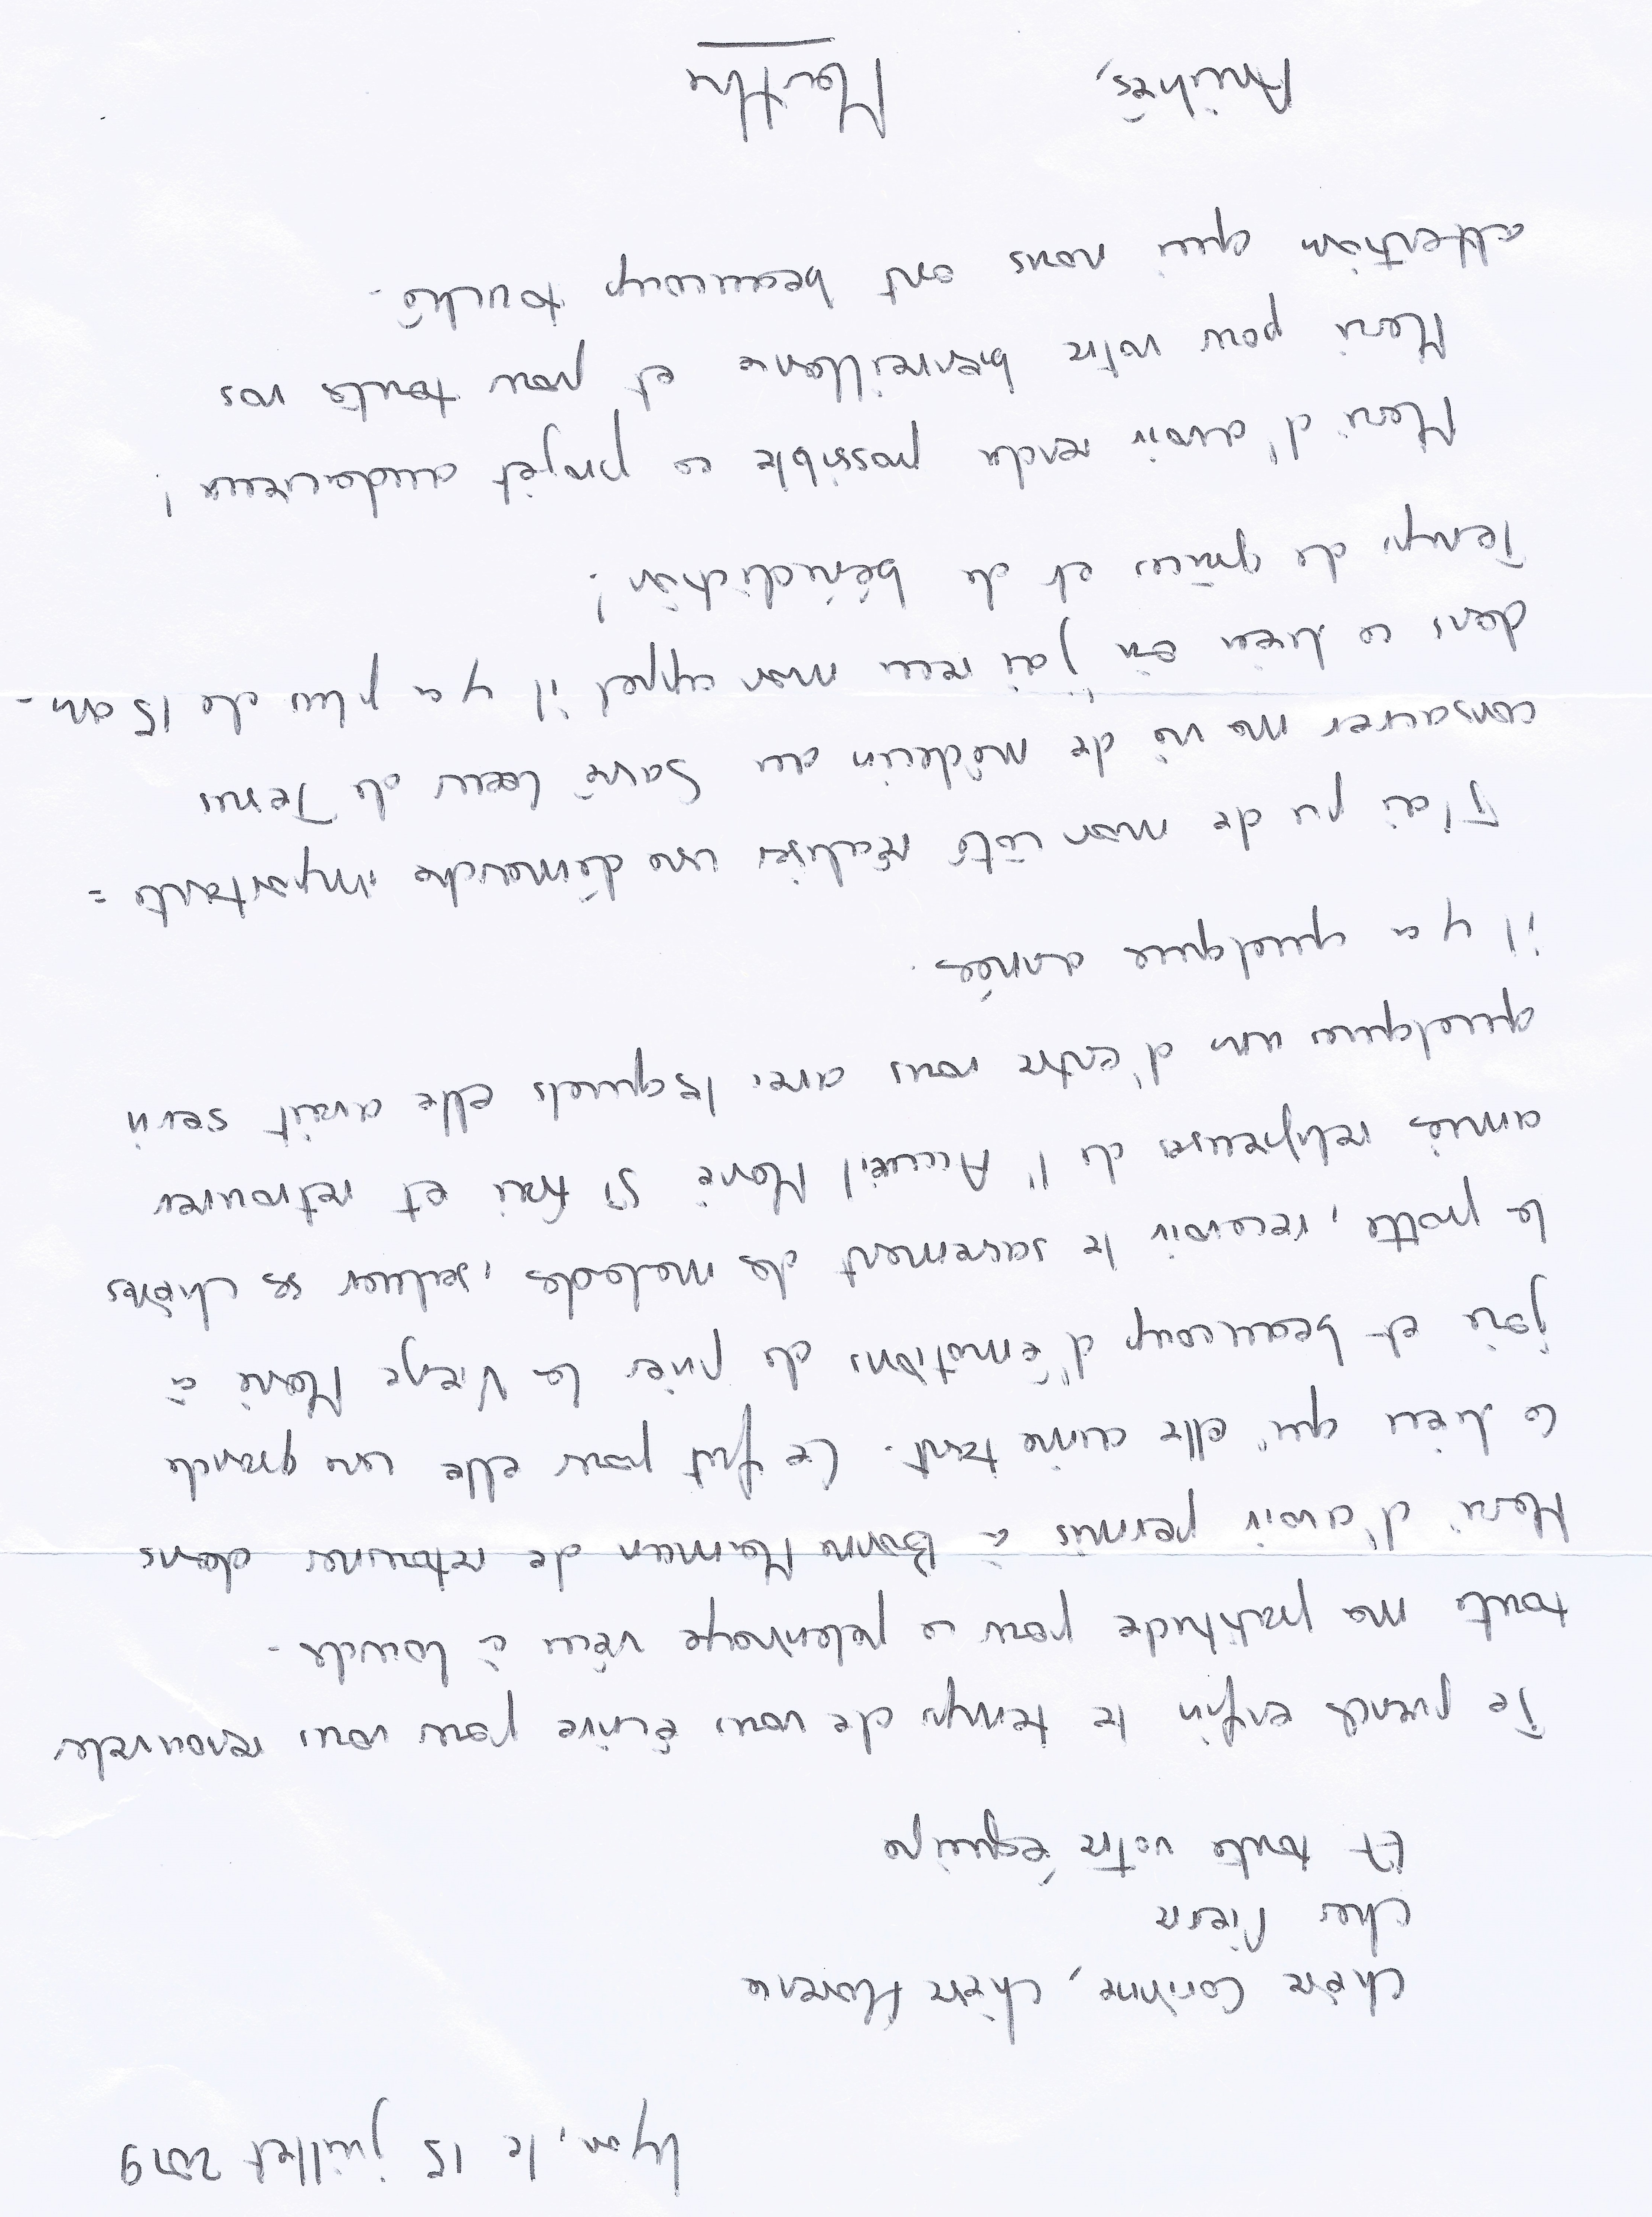 Lyon, le 15 juillet 2019
chère Corinne, chère Florence
cher Pierre
Et toute votre équipe
Je prends enfin le temps de vous écrire pour vous renouveler
toute ma gratitude pour ce pélerinage vécu à Lourdes.
Merci d'avoir permis à Bonne Maman de retourner dans
ce lieu qu'elle aime tant. Ce fut pour elle une grande
joie et beaucoup d'émotions de prier la Vierge Marie à
la grotte, recevoir le sacrement des malades, saluer ses chères
amies religieuses de l'Accueil Marie St Frai et retrouver
quelques uns d'entre nous avec lesquels elle avait servi
il y a quelques années.
J'ai pu de mon côté réaliser une démarche importante :
consacrer ma vie de médecin au Sacré Coeur de Jésus
dans ce lieu où j'ai reçu mon appel il y a plus de 15 ans.
Temps de grâces et de bénédiction !
Merci d'avoir rendu possible ce projet audacieux !
Merci pour votre bienveillance et pour toutes vos
attention qui nous ont beaucoup touché.
Amitiés, Martha